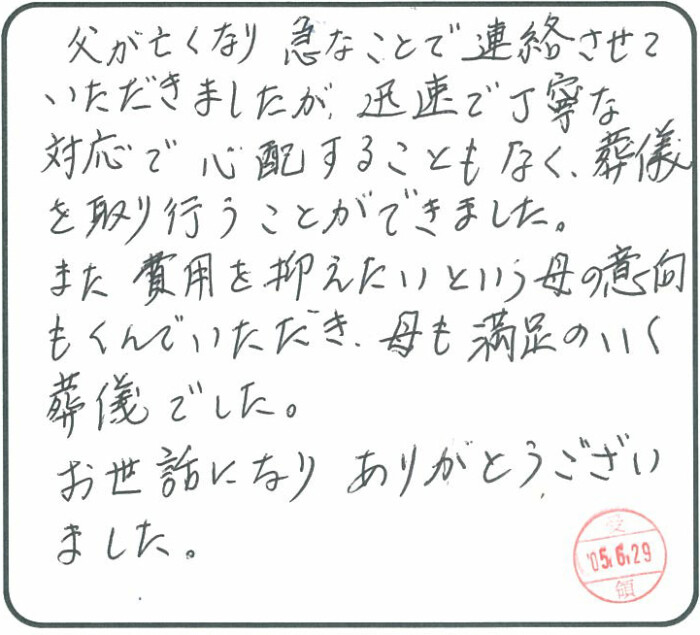 父が亡くなり 急なことで連絡させて
いただきましたが、迅速で丁寧な
対応で心配することもなく、葬儀
を取り行うことができました。
また 費用を抑えたいという母の意向
もくんでいただき、母も満足のいく
葬儀でした。
お世話になり ありがとうござい
ました。
受
'05.6.29
領